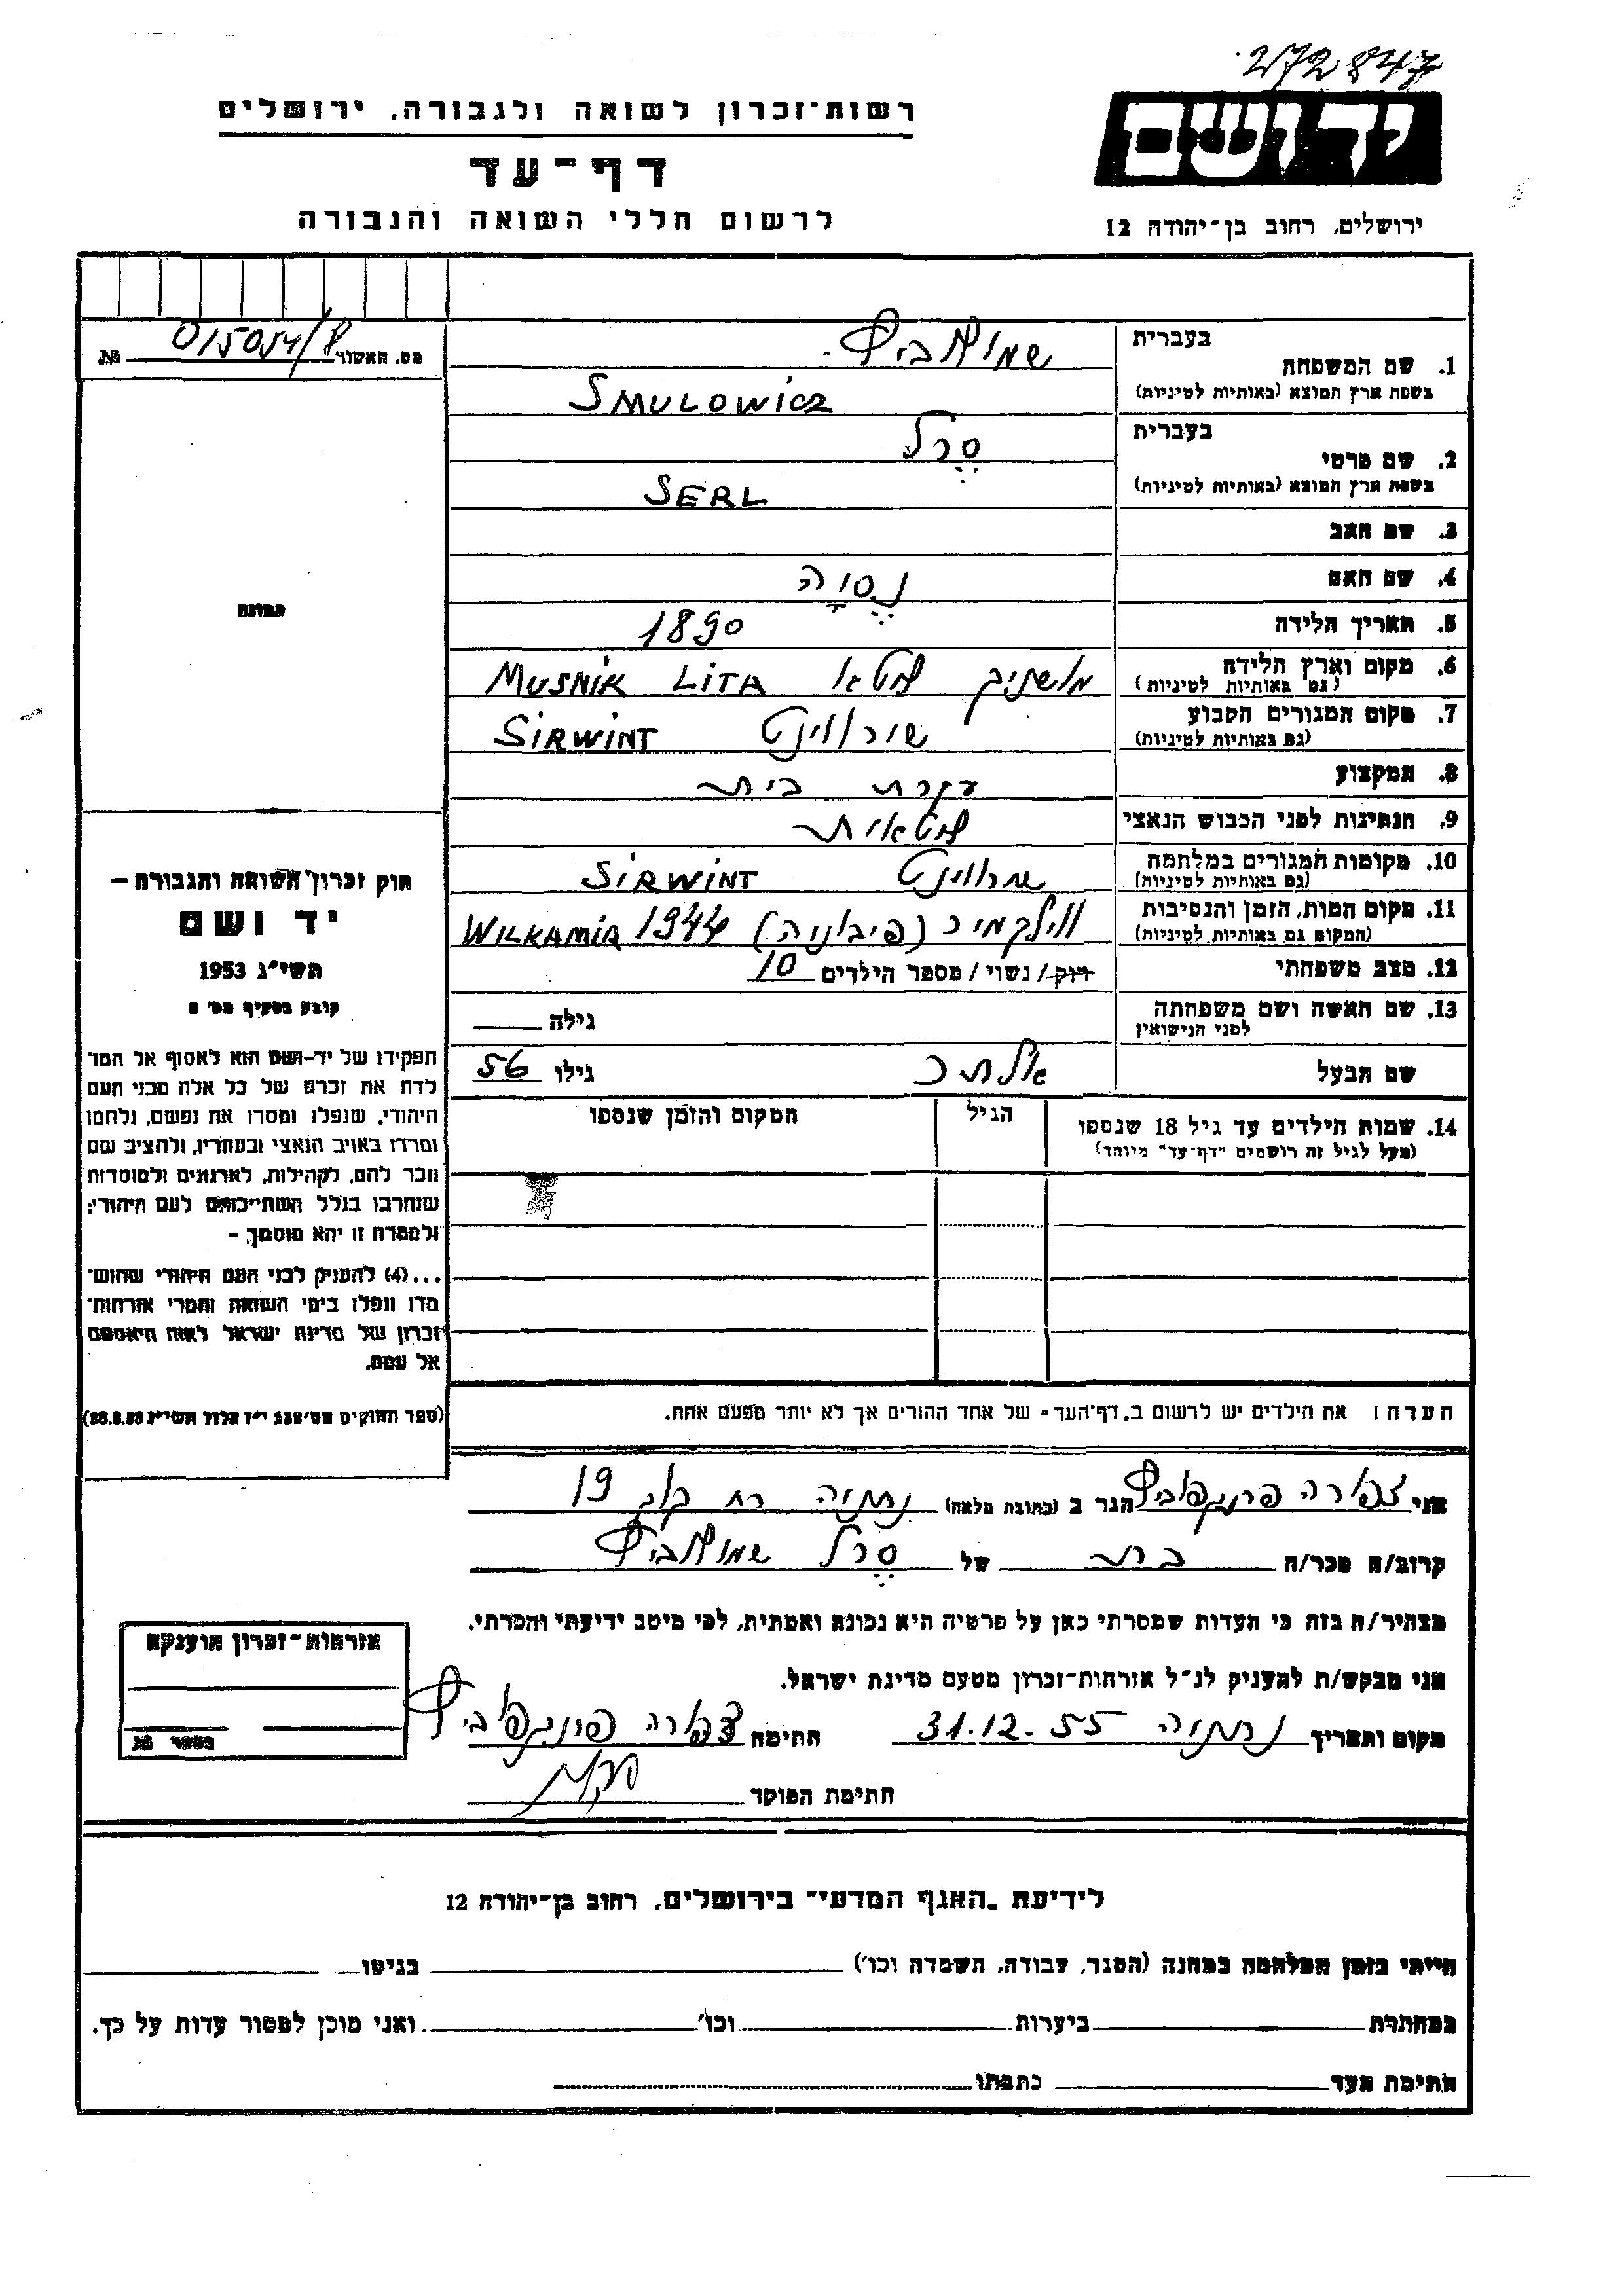 272847
רשות-זכרון לשואה ולגבורה, ירושלים
יד ושם
דף-עד
לרשום חללי השואה והגבורה
ירושלים, רחוב בן-יהודה 12
מס. האשור 015054/8 №
בעברית
1. שם המשפחה שמולביץ
בשפת ארץ המוצא (באותיות לטיניות) SMULOWICZ
בעברית
2. שם פרטי סרל
בשפת ארץ המוצא (באותיות לטיניות) SERL
3. שם האב
4. שם האם נסיה
תמונה
5. תאריך הלידה 1890
6. מקום וארץ הלידה מושניק ליטא MUSNIK LITA
(גם באותיות לטיניות)
7. מקום המגורים הקבוע שירווינט SIRWINT
(גם באותיות לטיניות)
8. המקצוע עקרת בית
9. הנתינות לפני הכבוש הנאצי ליטאית
10. מקומות המגורים במלחמה שרווינט SIRWINT
(גם באותיות לטיניות)
11. מקום המות, הזמן והנסיבות ווילקמיר WILKAMIR 1944
(המקום גם באותיות לטיניות)
12. מצב משפחתי רווק / נשוי / מספר הילדים 10
13. שם האשה ושם משפחתה גילה
לפני הנישואין
שם הבעל גילו 56
14. שמות הילדים עד גיל 18 שנספו הגיל המקום והזמן שנספו
(מעל לגיל זה רושמים "דף-עד" מיוחד)
חוק זכרון השואה והגבורה –
יד ושם
תשי"ג 1953
קובע בסעיף מס' 2
תפקידו של יד-ושם הוא לאסוף אל המו־
לדת את זכרם של כל אלה מבני העם
היהודי, שנפלו ומסרו את נפשם, נלחמו
ומרדו באויב הנאצי ובעוזריו, ולהציב שם
וזכר להם, לקהילות, לארגונים ולמוסדות
שנחרבו בגלל השתייכותם לעם היהודי;
ולמטרה זו יהא מוסמך, –
...(4) להעניק לבני העם היהודי שהוש־
מדו ונפלו בימי השואה והמרי אזרחות־
זכרון של מדינת ישראל לאות היאספם
אל עמם.
(ספר החוקים מס' 132 י"ז אלול תשי"ג 28.8.53)
הערה: את הילדים יש לרשום ב"דף-העד" של אחד ההורים אך לא יותר מפעם אחת.
אני צפורה הגר ב (כתובת מלאה) נתניה 19
קרוב/ה מכר/ה בת של סרל שמולביץ
מצהיר/ה בזה כי העדות שמסרתי כאן על פרטיה היא נכונה ואמתית, לפי מיטב ידיעתי והכרתי.
אני מבקש/ת להעניק לנ"ל אזרחות-זכרון מטעם מדינת ישראל.
מקום ותאריך נתניה 31.12.55 חתימה צפורה
חתימת הפוקד
אזרחות-זכרון הוענקה
מספר №
לידיעת "האגף המדעי" בירושלים, רחוב בן-יהודה 12
הייתי בזמן המלחמה במחנה (הסגר, עבודה, השמדה וכו') בגיטו
במחתרת ביערות וכו' ואני מוכן למסור עדות על כך.
חתימת העד כתבתו